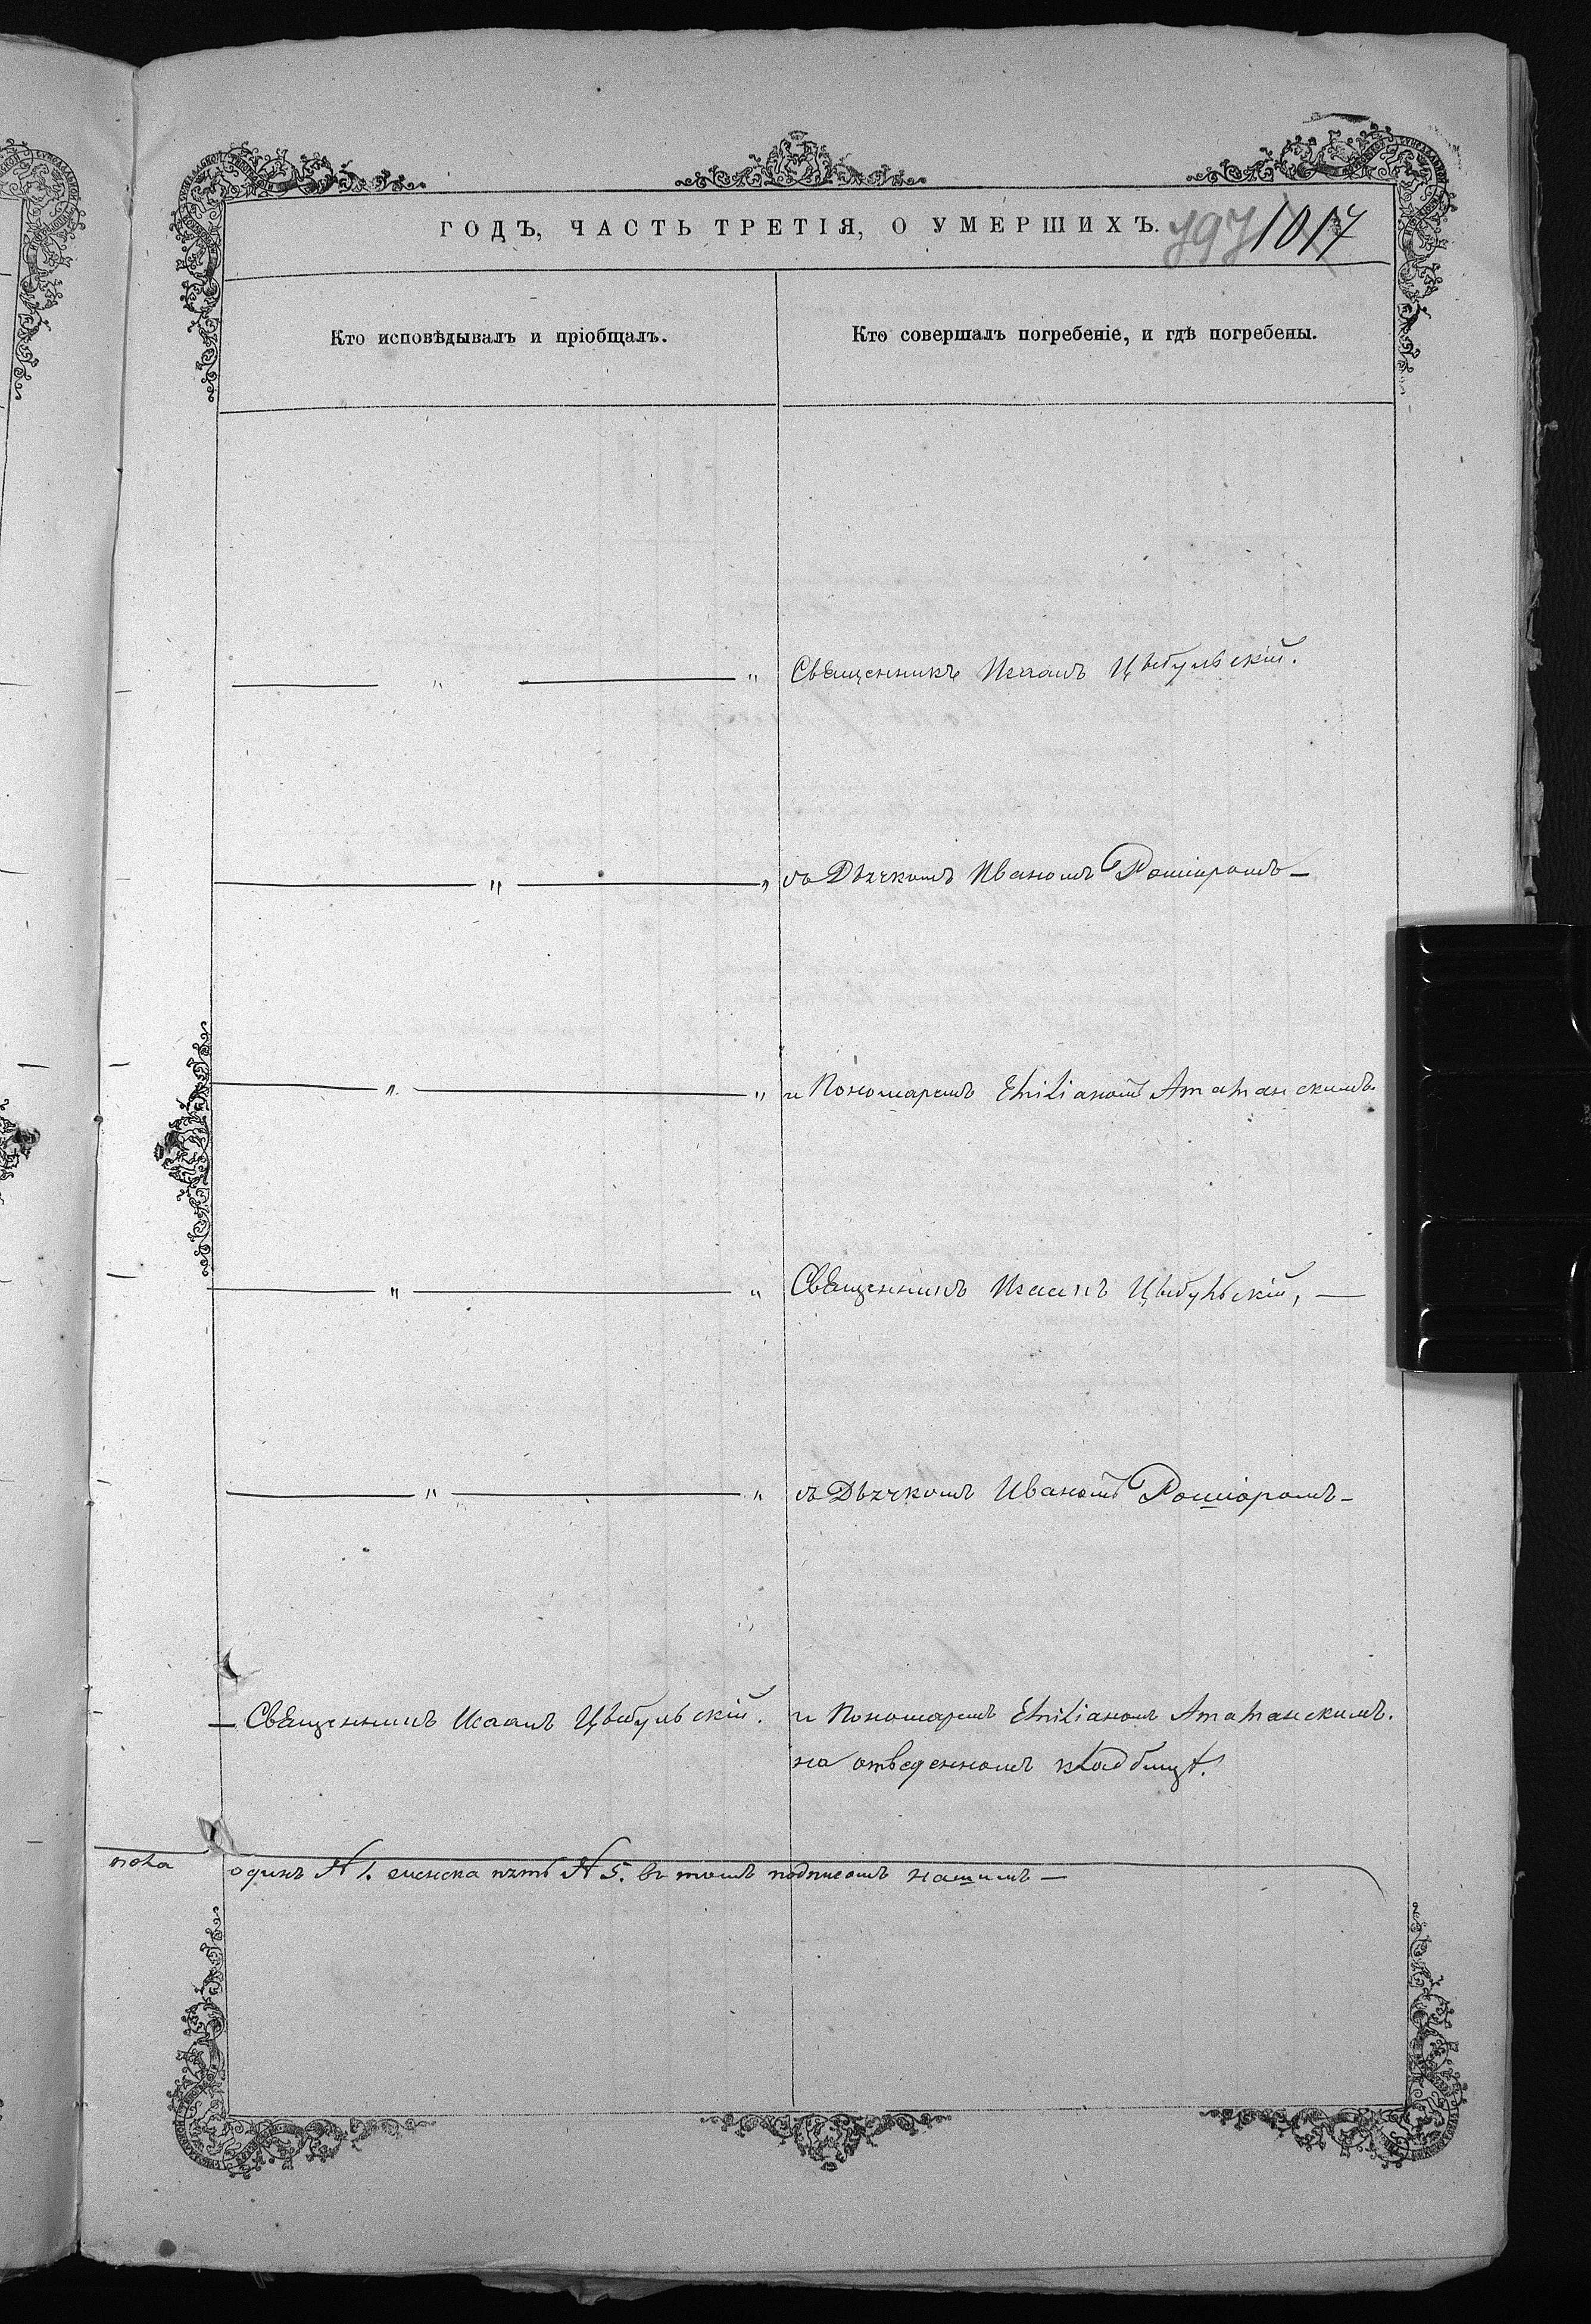 ГОДЪ, ЧАСТЬ ТРЕТІЯ, О УМЕРШИХЪ. 797 1017
Кто исповѣдывалъ и пріобщалъ. Кто совершалъ погребеніе, и гдѣ погребены.
— " — " Священникъ Исаакъ Цыбульскій.
— " — " съ Дьячкомъ Иваномъ Рошіоромъ —
— " — " и Пономаремъ Емиліаномъ Атаманскимъ.
— " — " Священникъ Исаакъ Цыбульскій, —
— " — " съ Дьячкомъ Иваномъ Рошіоромъ —
— Священникъ Исаакъ Цыбульскій. и Пономаремъ Емиліаномъ Атаманскимъ.
на отведенномъ кладбищѣ.
пола одинъ № 1. женска пять № 5. въ томъ подписомъ нашимъ —